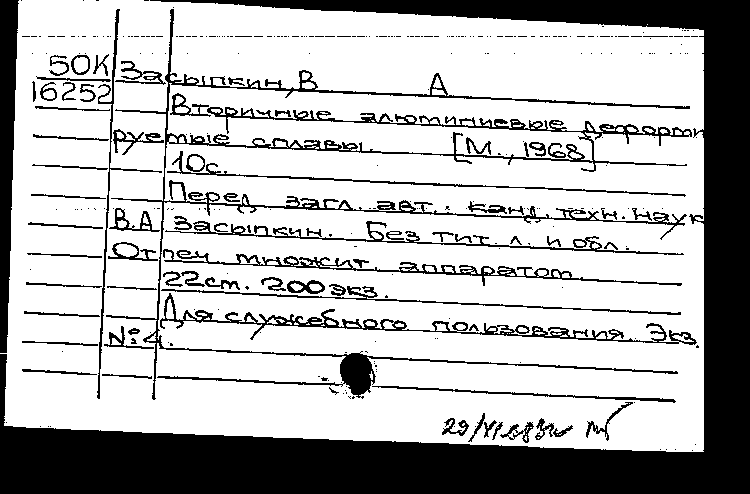 50К Засыпкин, В А
16252
Вторичные алюминиевые дефорти
руетые сплавы. [М., 1968]
10с.
Перед загл. авт.: канд. техн. наук
В.А Засыпкин. Без тит. л. и обл.
Отпеч. множит. аппаратом.
22ст. 200экз.
Для служебного пользования. Экз.
№4.